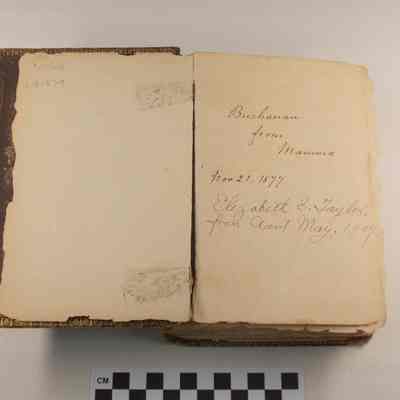 Buchanan
from
Mamma
Nov 21, 1877
Elizabeth E. Taylor,
from Aunt May,
CM